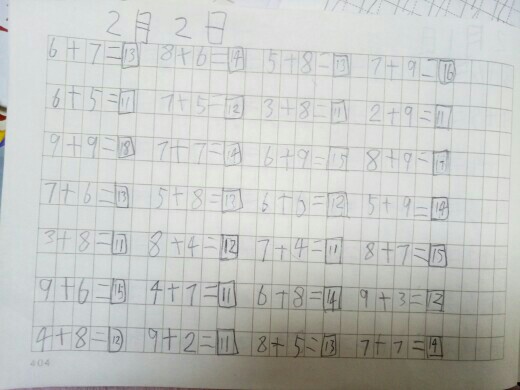 2月2日
6+7=13 8+6=14 5+8=13 7+9=16
6+5=11 7+5=12 3+8=11 2+9=11
9+9=18 7+7=14 6+9=15 8+9=17
7+6=13 5+8=13 6+6=12 5+9=14
3+8=11 8+4=12 7+4=11 8+7=15
9+6=15 4+7=11 6+8=14 9+3=12
4+8=12 9+2=11 8+5=13 7+7=14
404